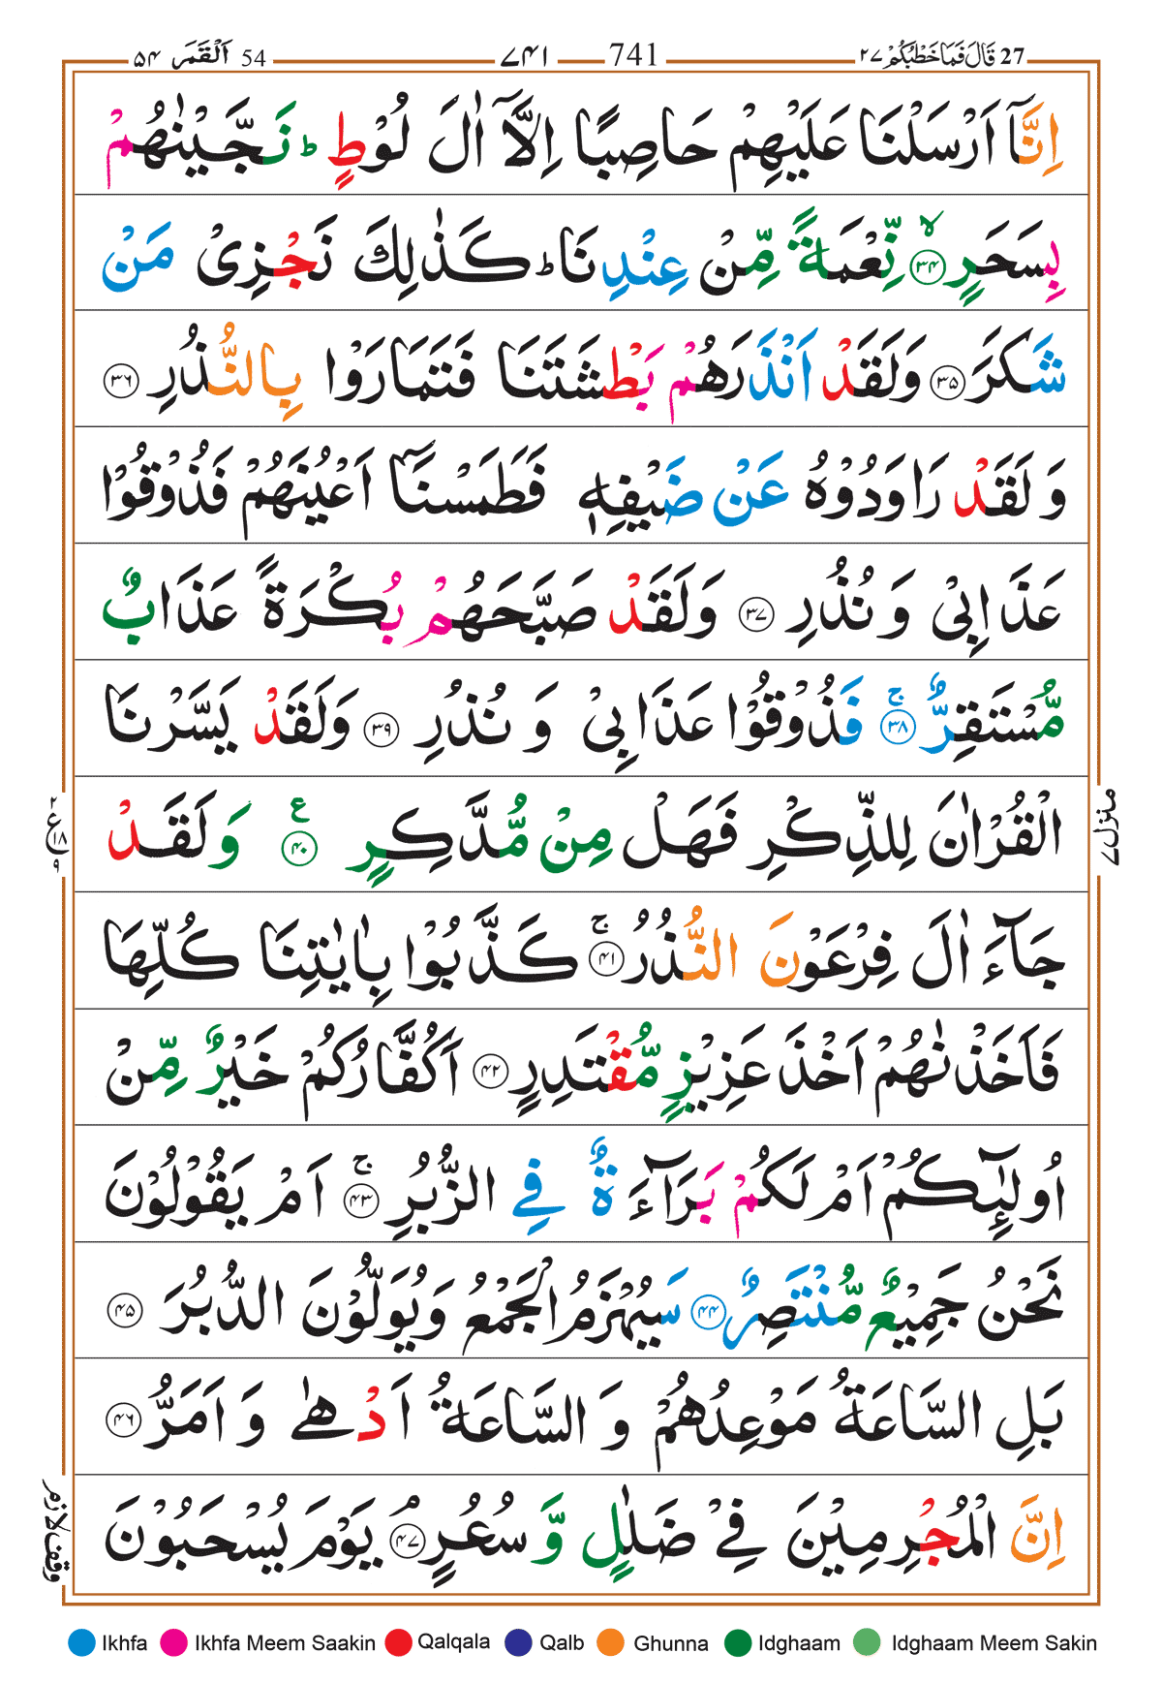 54 اَلْقَمَر ۵۴ 741 ۷۴۱ 27 قَالَ فَمَا خَطْبُكُمْ ۲۷
اِنَّاۤ اَرْسَلْنَا عَلَيْهِمْ حَاصِبًا اِلَّاۤ اٰلَ لُوْطٍ ؕ نَجَّيْنٰهُمْ
بِسَحَرٍ ۙ‏﴿۳۴﴾ نِّعْمَةً مِّنْ عِنْدِنَا ؕ كَذٰلِكَ نَجْزِىْ مَنْ
شَكَرَ ﴿۳۵﴾ وَلَقَدْ اَنْذَرَهُمْ بَطْشَتَنَا فَتَمَارَوْا بِالنُّذُرِ ﴿۳۶﴾
وَ لَقَدْ رَاوَدُوْهُ عَنْ ضَيْفِهٖ فَطَمَسْنَاۤ اَعْيُنَهُمْ فَذُوْقُوْا
عَذَابِىْ وَ نُذُرِ ﴿۳۷﴾ وَلَقَدْ صَبَّحَهُمْ بُكْرَةً عَذَابٌ
مُّسْتَقِرٌّ ۚ‏﴿۳۸﴾ فَذُوْقُوْا عَذَابِىْ وَ نُذُرِ ﴿۳۹﴾ وَلَقَدْ يَسَّرْنَا
الْقُرْاٰنَ لِلذِّكْرِ فَهَلْ مِنْ مُّدَّكِرٍ ﴿۴۰﴾ ع وَلَقَدْ
جَآءَ اٰلَ فِرْعَوْنَ النُّذُرُ ۚ‏﴿۴۱﴾ كَذَّبُوْا بِاٰيٰتِنَا كُلِّهَا
فَاَخَذْنٰهُمْ اَخْذَ عَزِيْزٍ مُّقْتَدِرٍ ﴿۴۲﴾ اَكُفَّارُكُمْ خَيْرٌ مِّنْ
اُولٰٓئِكُمْ اَمْ لَكُمْ بَرَآءَةٌ فِى الزُّبُرِ ۚ‏﴿۴۳﴾ اَمْ يَقُوْلُوْنَ
نَحْنُ جَمِيْعٌ مُّنْتَصِرٌ ﴿۴۴﴾ سَيُهْزَمُ الْجَمْعُ وَيُوَلُّوْنَ الدُّبُرَ ﴿۴۵﴾
بَلِ السَّاعَةُ مَوْعِدُهُمْ وَ السَّاعَةُ اَدْهٰى وَ اَمَرُّ ﴿۴۶﴾
اِنَّ الْمُجْرِمِيْنَ فِىْ ضَلٰلٍ وَّ سُعُرٍ ۘ‏﴿۴۷﴾ يَوْمَ يُسْحَبُوْنَ
منزل ۷
وقف لازم
Ikhfa Ikhfa Meem Saakin Qalqala Qalb Ghunna Idghaam Idghaam Meem Sakin